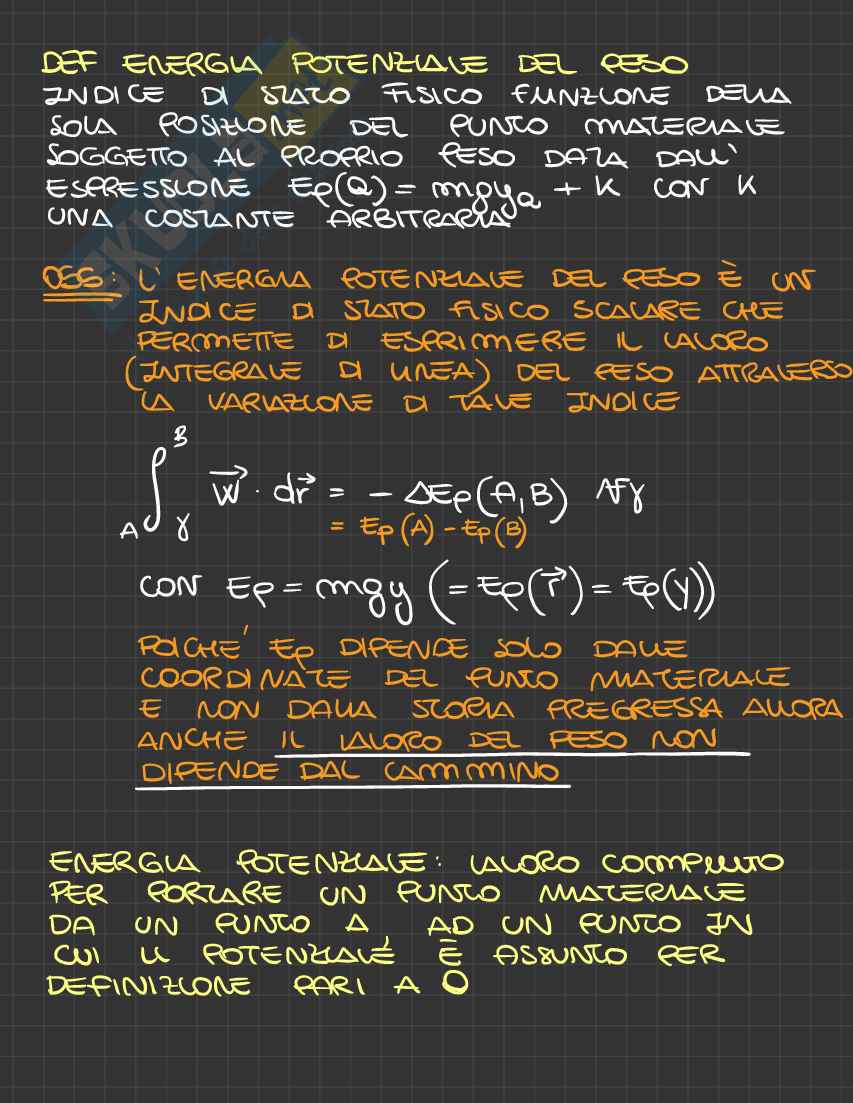 DEF ENERGIA POTENZIALE DEL PESO
INDICE DI STATO FISICO FUNZIONE DELLA
SOLA POSIZIONE DEL PUNTO MATERIALE
SOGGETTO AL PROPRIO PESO DATA DALL'
ESPRESSIONE Ep(Q) = mgy_Q + K CON K
UNA COSTANTE ARBITRARIA
OSS: L'ENERGIA POTENZIALE DEL PESO È UN
INDICE DI STATO FISICO SCALARE CHE
PERMETTE DI ESPRIMERE IL LAVORO
(INTEGRALE DI LINEA) DEL PESO ATTRAVERSO
LA VARIAZIONE DI TALE INDICE
∫_{A γ}^{B} \vec{W} · d\vec{r} = - ΔEp(A,B) ∀γ
= Ep(A) - Ep(B)
CON Ep = mgy (= Ep(\vec{r}) = Ep(y))
POICHE' Ep DIPENDE SOLO DALLE
COORDINATE DEL PUNTO MATERIALE
E NON DALLA STORIA PREGRESSA ALLORA
ANCHE IL LAVORO DEL PESO NON
DIPENDE DAL CAMMINO
ENERGIA POTENZIALE: LAVORO COMPIUTO
PER PORTARE UN PUNTO MATERIALE
DA UN PUNTO A, AD UN PUNTO IN
CUI IL POTENZIALE È ASSUNTO PER
DEFINIZIONE PARI A 0